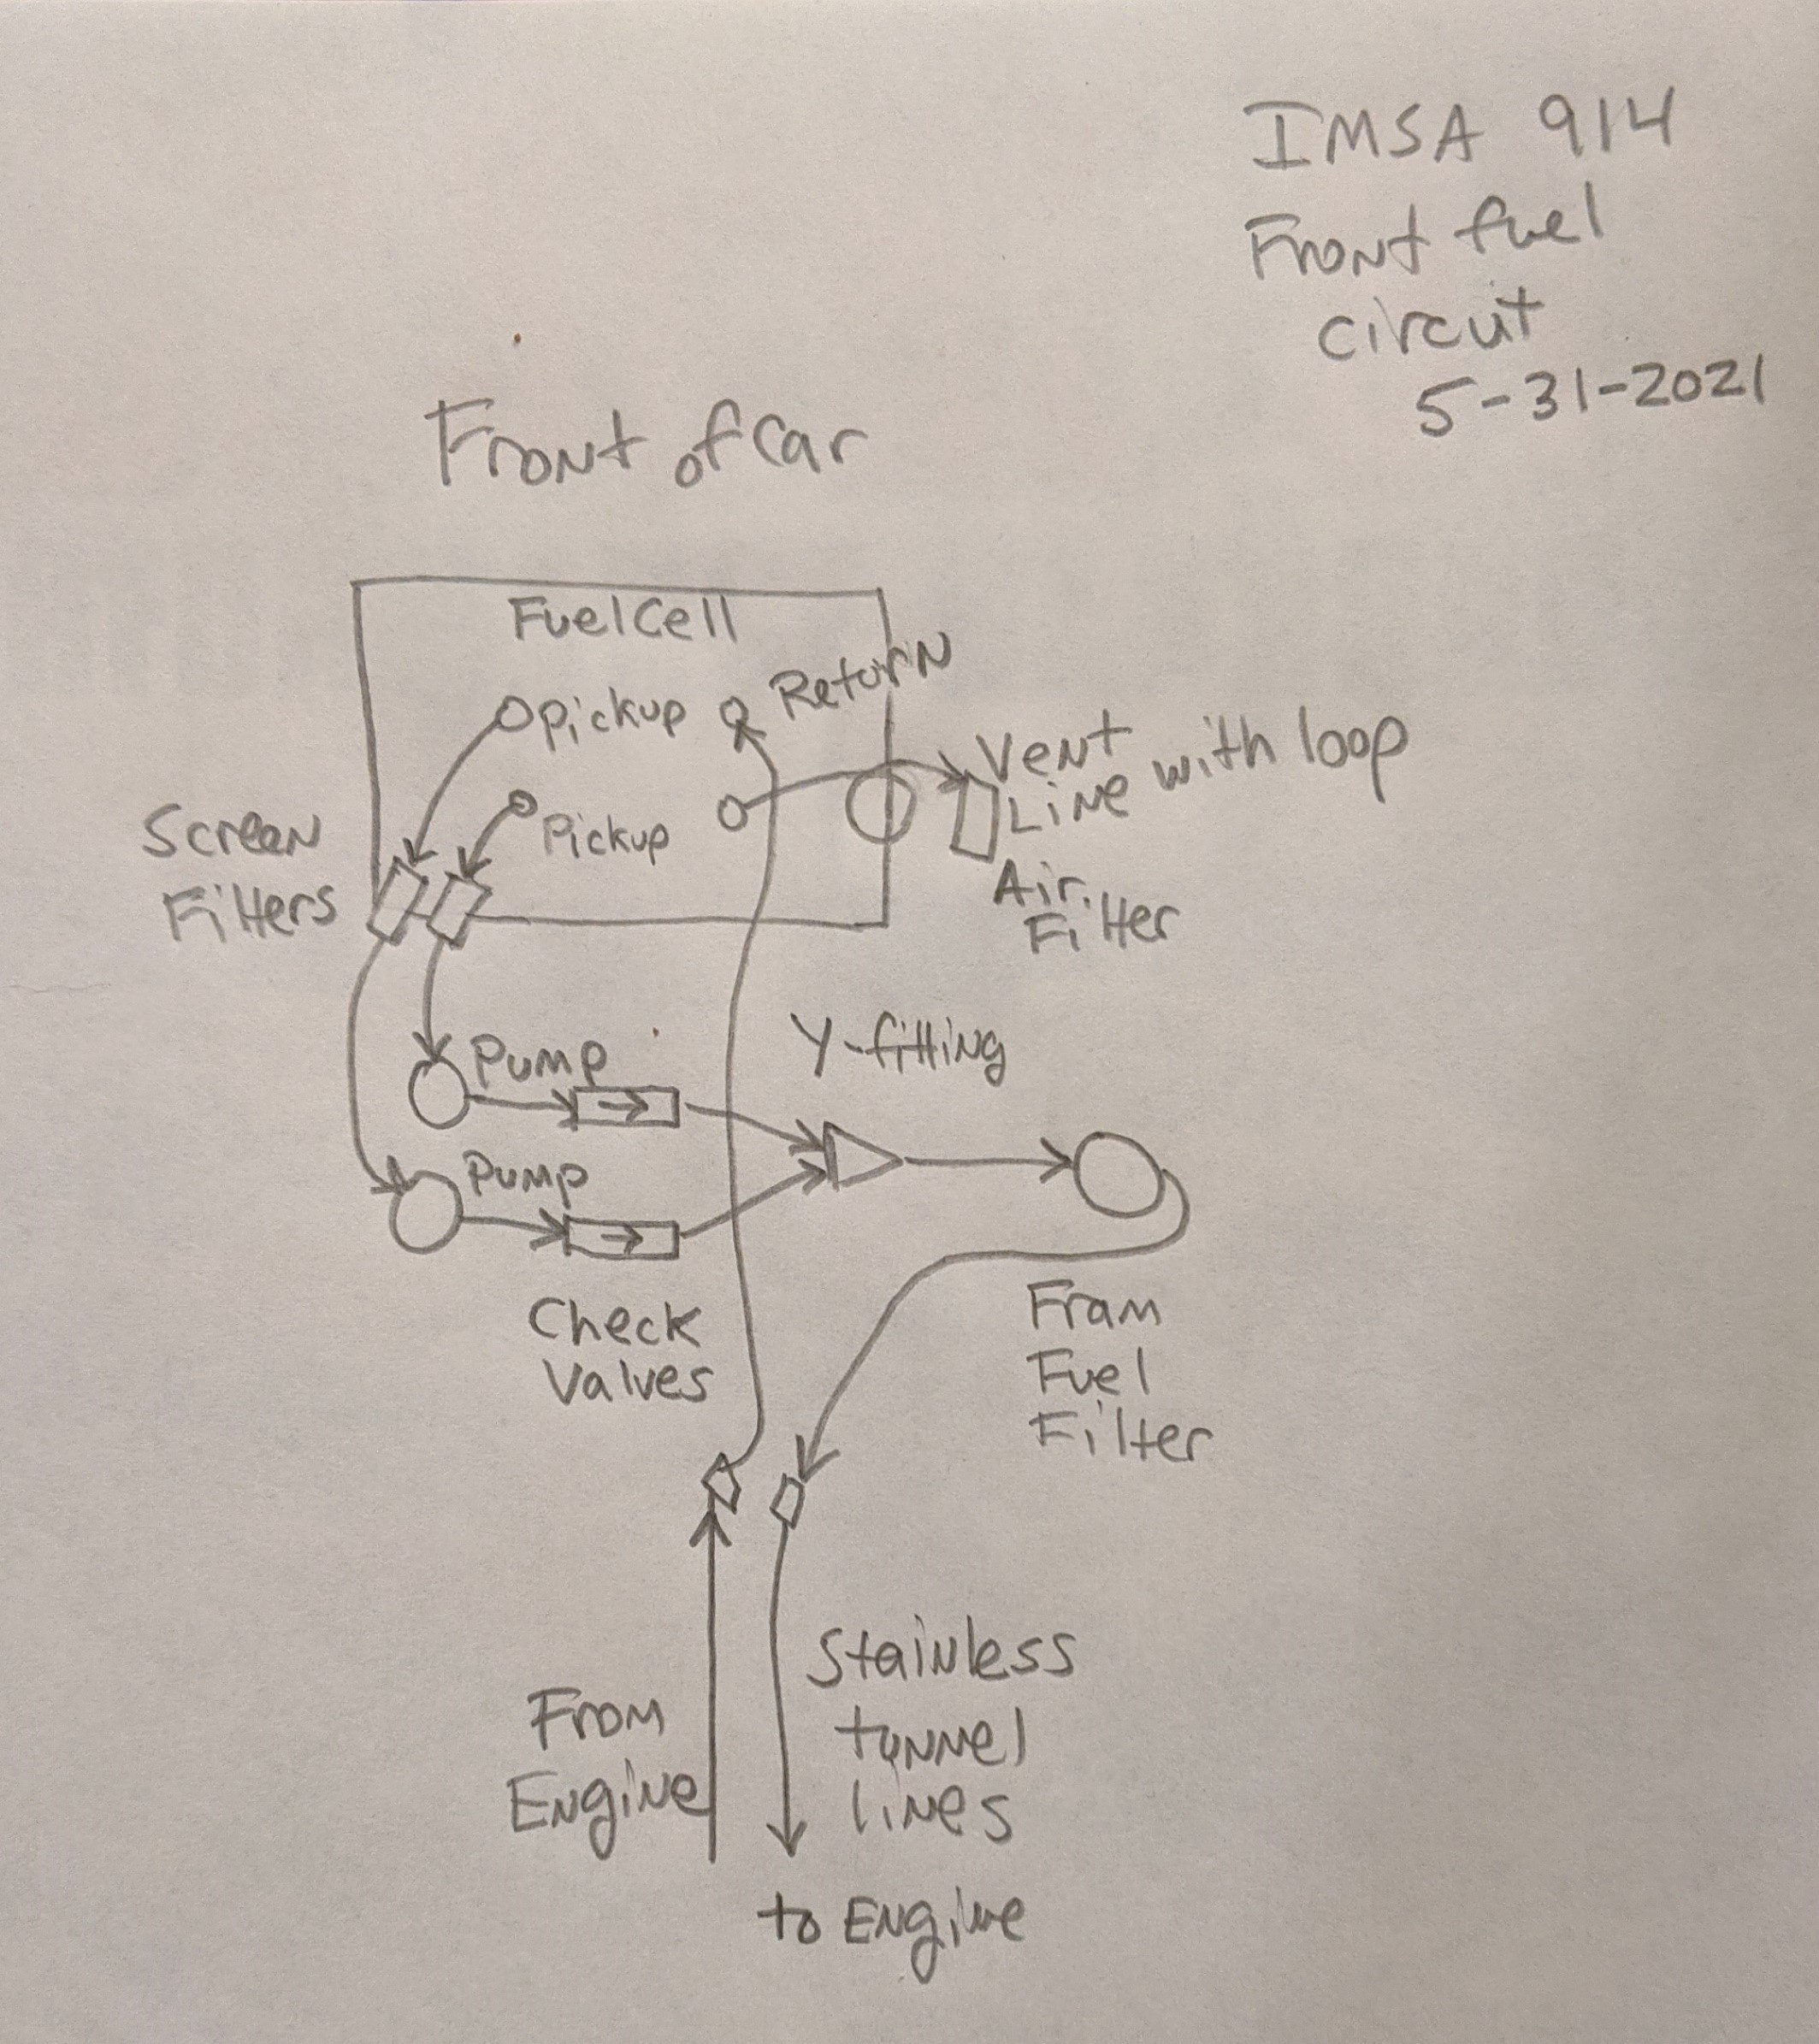 IMSA 914
Front fuel
circut
5-31-2021
Front of Car
Fuel Cell
Pickup
Return
Pickup
Vent
Line with loop
Air
Filter
Screen
Filters
Pump
Y-fitting
Pump
Check
Valves
Fram
Fuel
Filter
From
Engine
Stainless
tunnel
lines
to Engine